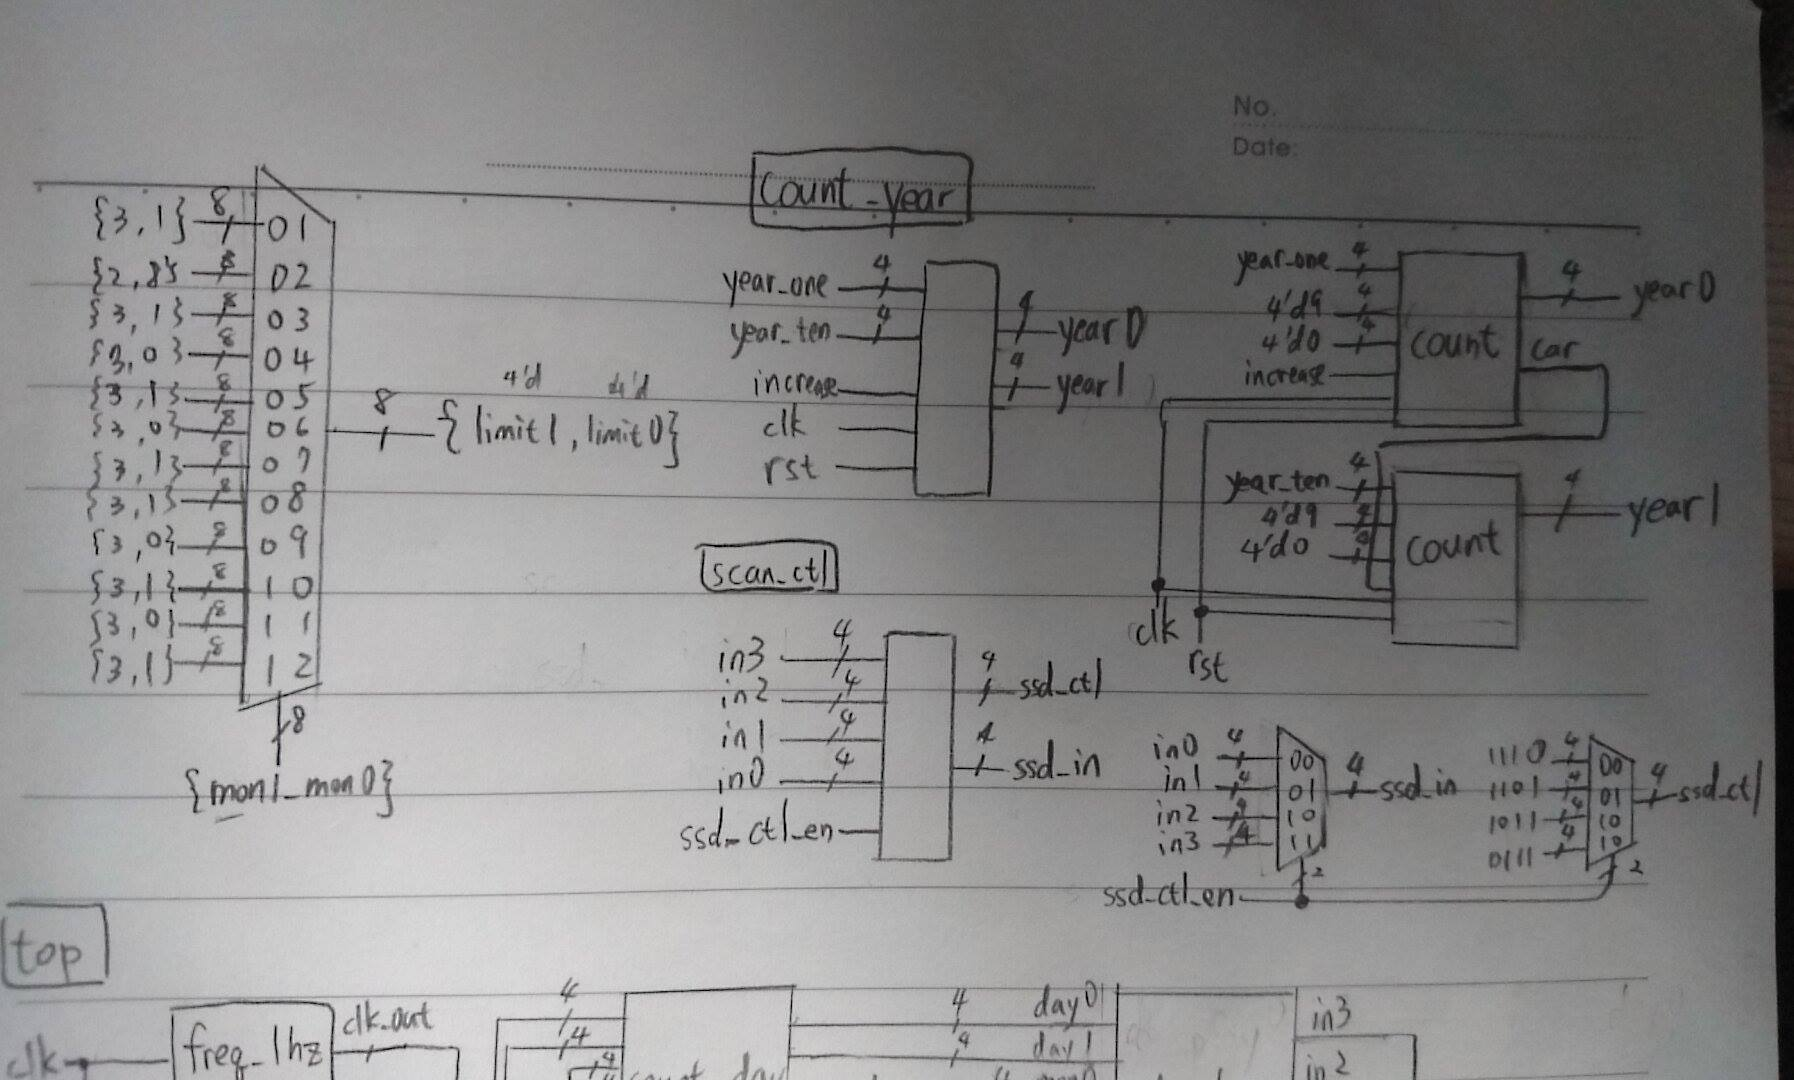 No.
Date:
count_year
{3,1} 8 01
{2,8} 8 02
{3,1} 8 03
{3,0} 8 04
{3,1} 8 05
{3,0} 8 06
{3,1} 8 07
{3,1} 8 08
{3,0} 8 09
{3,1} 8 10
{3,0} 8 11
{3,1} 8 12
8
{mon1_mon0}
4'd 4'd
8 {limit1, limit0}
year_one 4
year_ten 4
increase
clk
rst
4 year0
4 year1
year_one 4
4'd9 4
4'd0 4
increase
count
car
4 year0
year_ten 4
4'd9 4
4'd0 4
count
4 year1
clk
rst
scan_ctl
in3 4
in2 4
in1 4
in0 4
ssd_ctl_en
4 ssd_ctl
4 ssd_in
in0 4 00
in1 4 01
in2 4 10
in3 4 11
4 ssd_in
2
1110 4 00
1101 4 01
1011 4 10
0111 4 10
4 ssd_ctl
2
ssd_ctl_en
top
clk
freq_1hz
clk_out
4
4
4
count_day
4 day0
4 day1
mon0
in3
in2